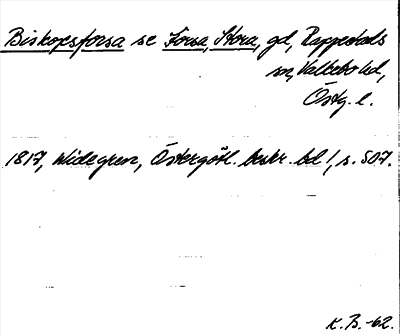 Biskopsforsa se Forsa, Stora, gd, Rappestads
sn, Valkebo hd,
Östg. l.
1817, Widegren, Östergötl. beskr. bd 1, s. 507.
K. B. -62.